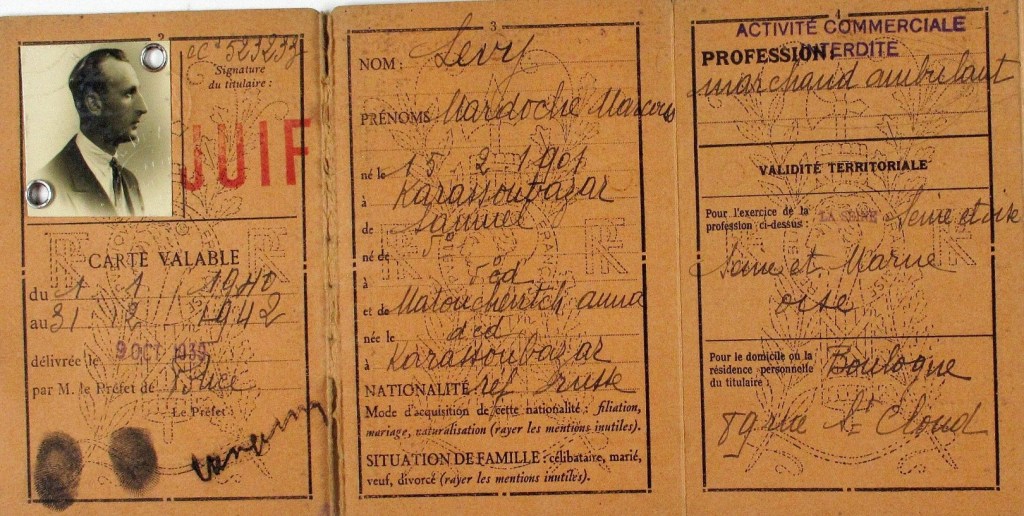 2
Nº 523233
Signature
du titulaire :
JUIF
CARTE VALABLE
du 1 1 1940
au 31 12 1942
délivrée le 9 OCT 1939
par M. le Préfet de Police
Le Préfet :
3
NOM : Levy
PRÉNOMS Mardoché Marcous
né le 15 2 1901
à Karassoubazar
de Samuel
né de
à
et de Matouchevitch anna
née le dcd
à Karassoubazar
NATIONALITÉ réf russe
Mode d'acquisition de cette nationalité : filiation,
mariage, naturalisation (rayer les mentions inutiles).
SITUATION DE FAMILLE : célibataire, marié,
veuf, divorcé (rayer les mentions inutiles).
4
ACTIVITÉ COMMERCIALE
INTERDITE
PROFESSION:
marchand ambulant
VALIDITÉ TERRITORIALE
Pour l'exercice de la
profession ci-dessus : LA SEINE Seine et oise
Seine et Marne
oise
Pour le domicile ou la
résidence personnelle
du titulaire : Boulogne
89 rue St Cloud
RF
RF
RF
RF
RF
RF